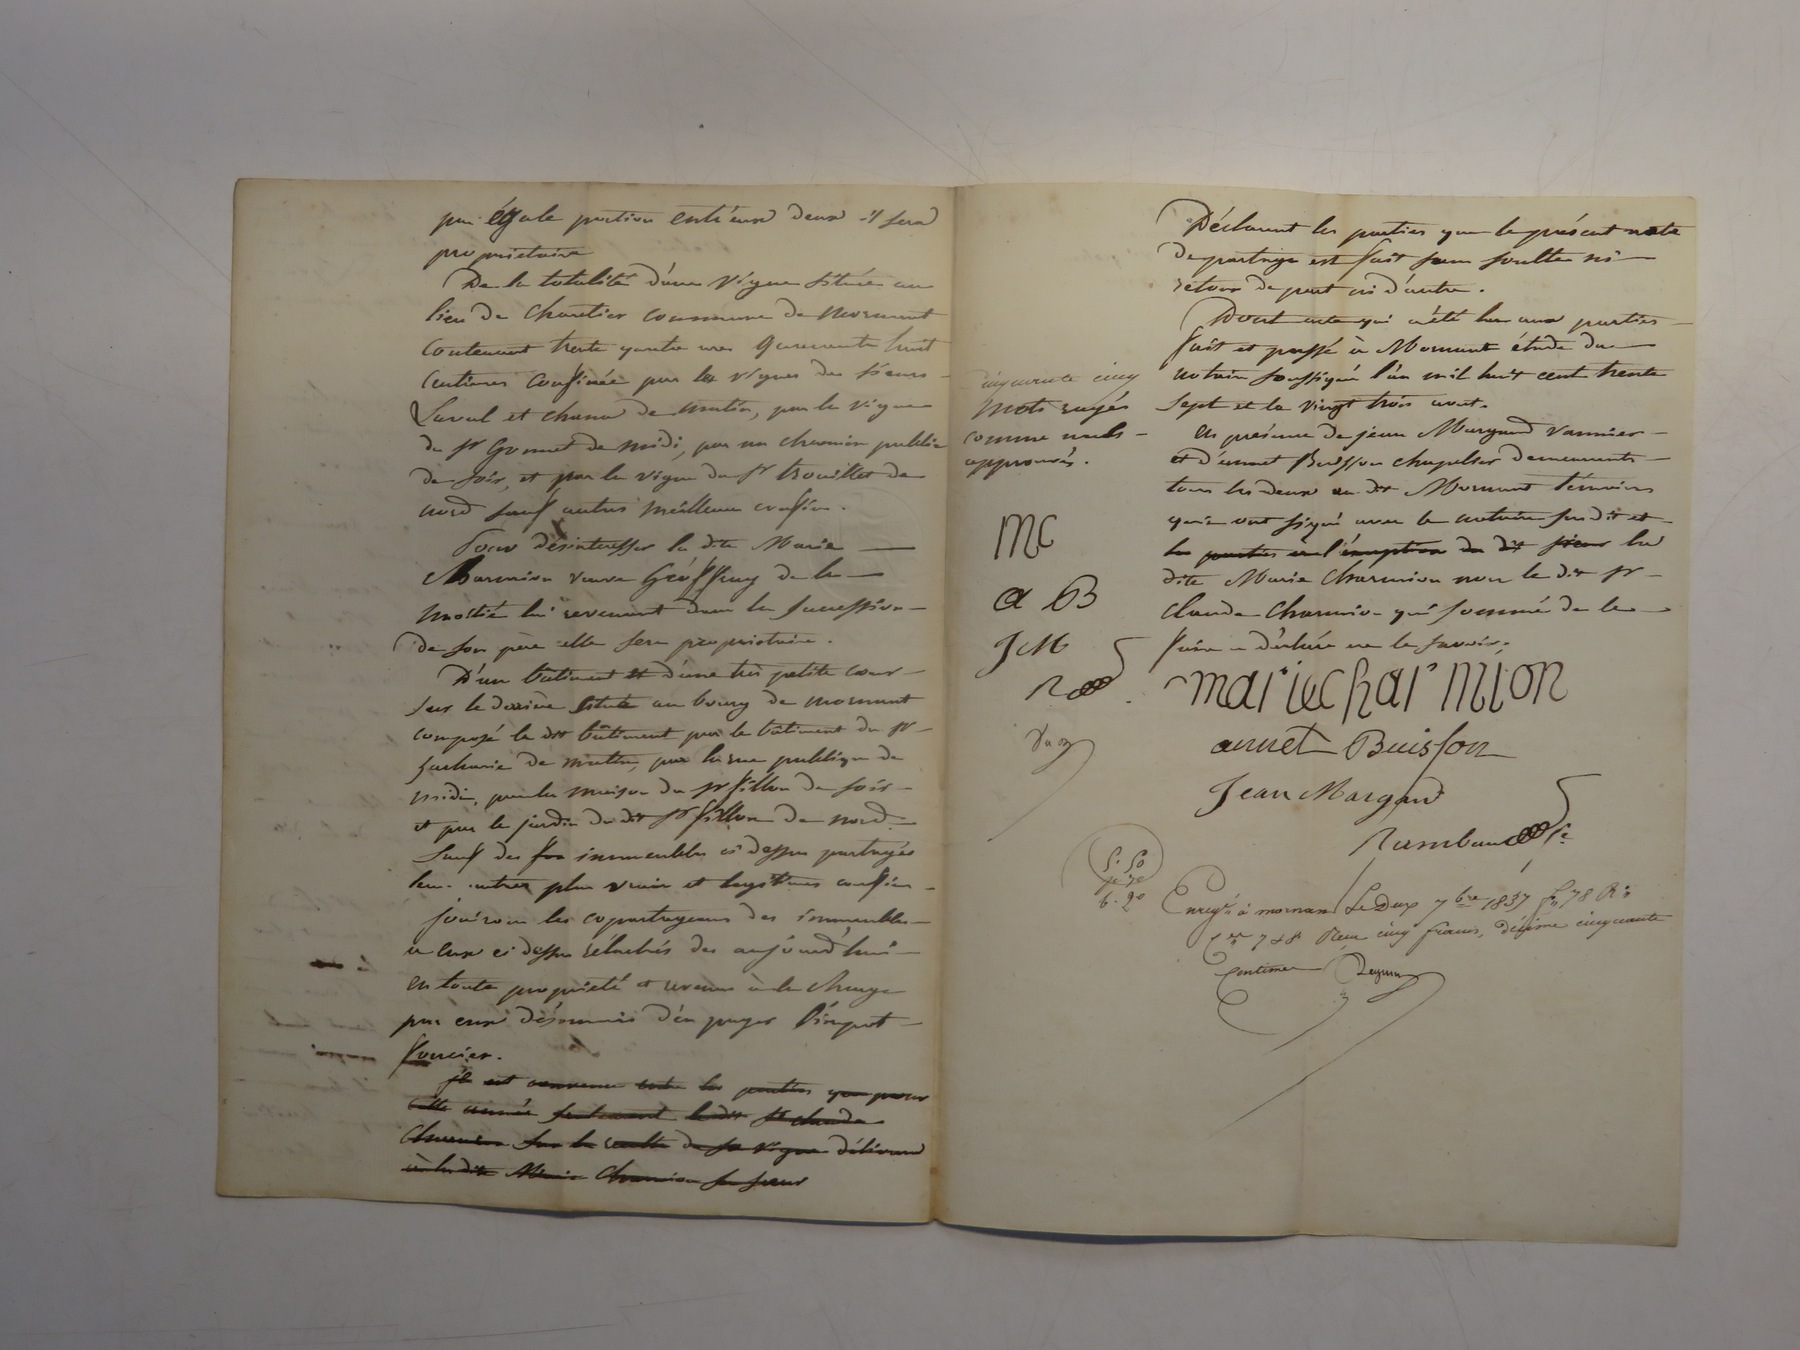 par égale portion entr'eux deux il sera
propriétaire
De la totalité d'une vigne située au
lieu de Chantier commune de Mornant
contenant trente quatre ares quarante huit
centiares confinée par les vignes des sieurs
Laval et de matin, par la vigne
du Sr Gonnet de midi, par un chemin public
de soir, et par la vigne du Sr trouillet de
nord sauf autres meilleurs confins.
Pour désintéresser la dite Marie
Charmion veuve de la
moitié lui revenant dans la succession
de son père elle sera propriétaire.
D'un bâtiment et d'une très petite cour
sur le derrière situé au bourg de mornant
composé le dit bâtiment par le bâtiment du Sr
Zacharie de matin, par la rue publique de
midi, par la maison du Sr fillon de soir
et par le jardin du dit Sr fillon de nord.
Sauf des immeubles ci dessus partagés
leurs autres plus vrais et légitimes confins
jouiront les copartageans des immeubles
à eux ci dessus relachés dès aujourd'hui
en toute propriété et revenus à la charge
par eux désormais d'en payer l'impot
foncier.
il est convenu entre les parties que pour
cette année seulement le dit Sr claude
Charmion la récolte de sa vigne
à la dite Marie Charmion sa soeur
cinquante cinq
mots rayés
comme nuls
approuvés.
MC
a B
JM
R
Déclarent les parties que le présent acte
de partage est fait sans soulte ni
retour de part ni d'autre.
Dont acte qui a été lu aux parties
fait et passé à Mornant étude du
notaire soussigné l'an mil huit cent trente
sept et le vingt trois aout.
en présence de jean Margand vannier
et d'annet Buisson chapelier demeurants
tous les deux au dit Mornant témoins
qui ont signé avec le notaire susdit et
les parties à l'exception du dit sieur la
dite Marie Charmion non le dit Sr
claude Charmion qui sommé de le
faire a déclaré ne le savoir.
marie charmion
annet Buisson
Jean Margand
Rambaud
5. 50
6. 20
Enregtré à mornant Le Deux 7bre 1837 fo 78 Ro
Cer 7 & 8 Reçu cinq francs, décime cinquante
centimes